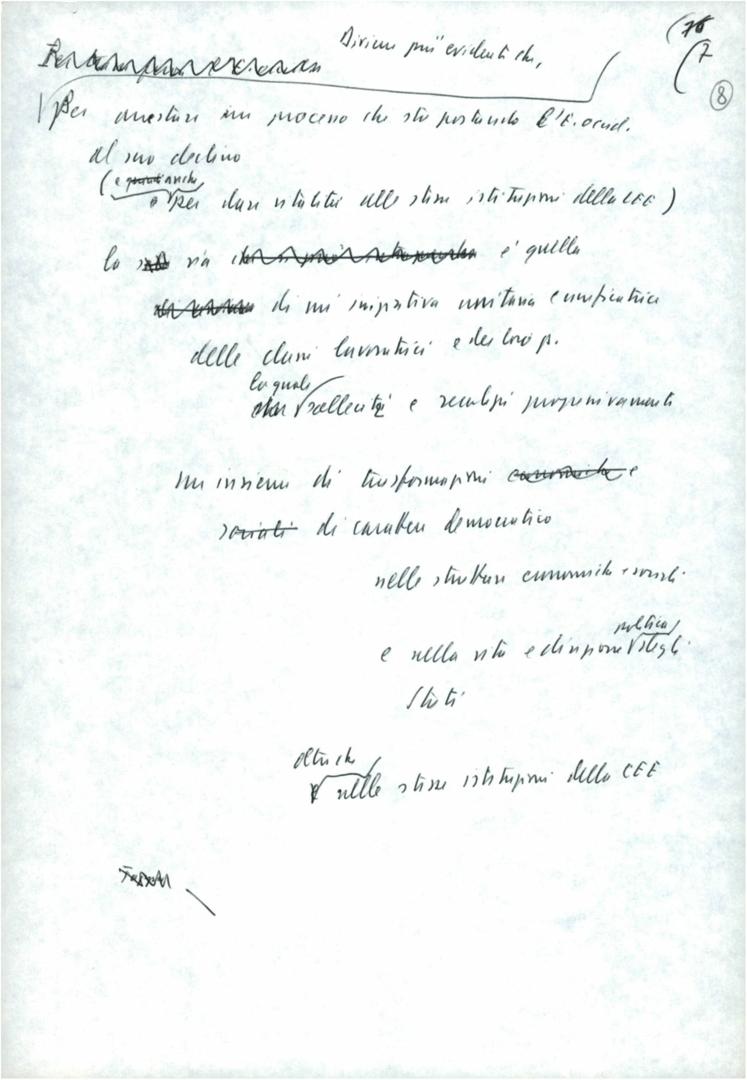 (76
(7
8
Diviene più evidente che,
per arrestare un processo che sta portando l'E. occid.
al suo declino
(e quindi anche
e per dare vitalità alle stesse istituzioni della CEE)
la via è quella
di un'iniziativa unitaria e unificatrice
delle classi lavoratrici e dei loro p.
la quale
che solleciti e realizzi progressivamente
un insieme di trasformazioni economiche e
sociali di carattere democratico
nelle strutture economiche e sociali
politica
e nella vita e direzione degli
Stati
oltre che
e nelle stesse istituzioni della CEE